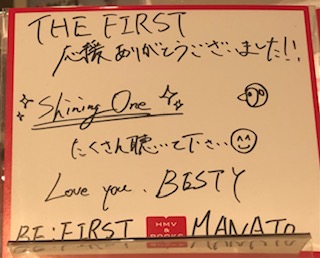 THE FIRST
応援ありがとうございました!!
Shining One
たくさん聴いて下さい
Love you. BESTY
BE:FIRST HMV & BOOKS MANATO